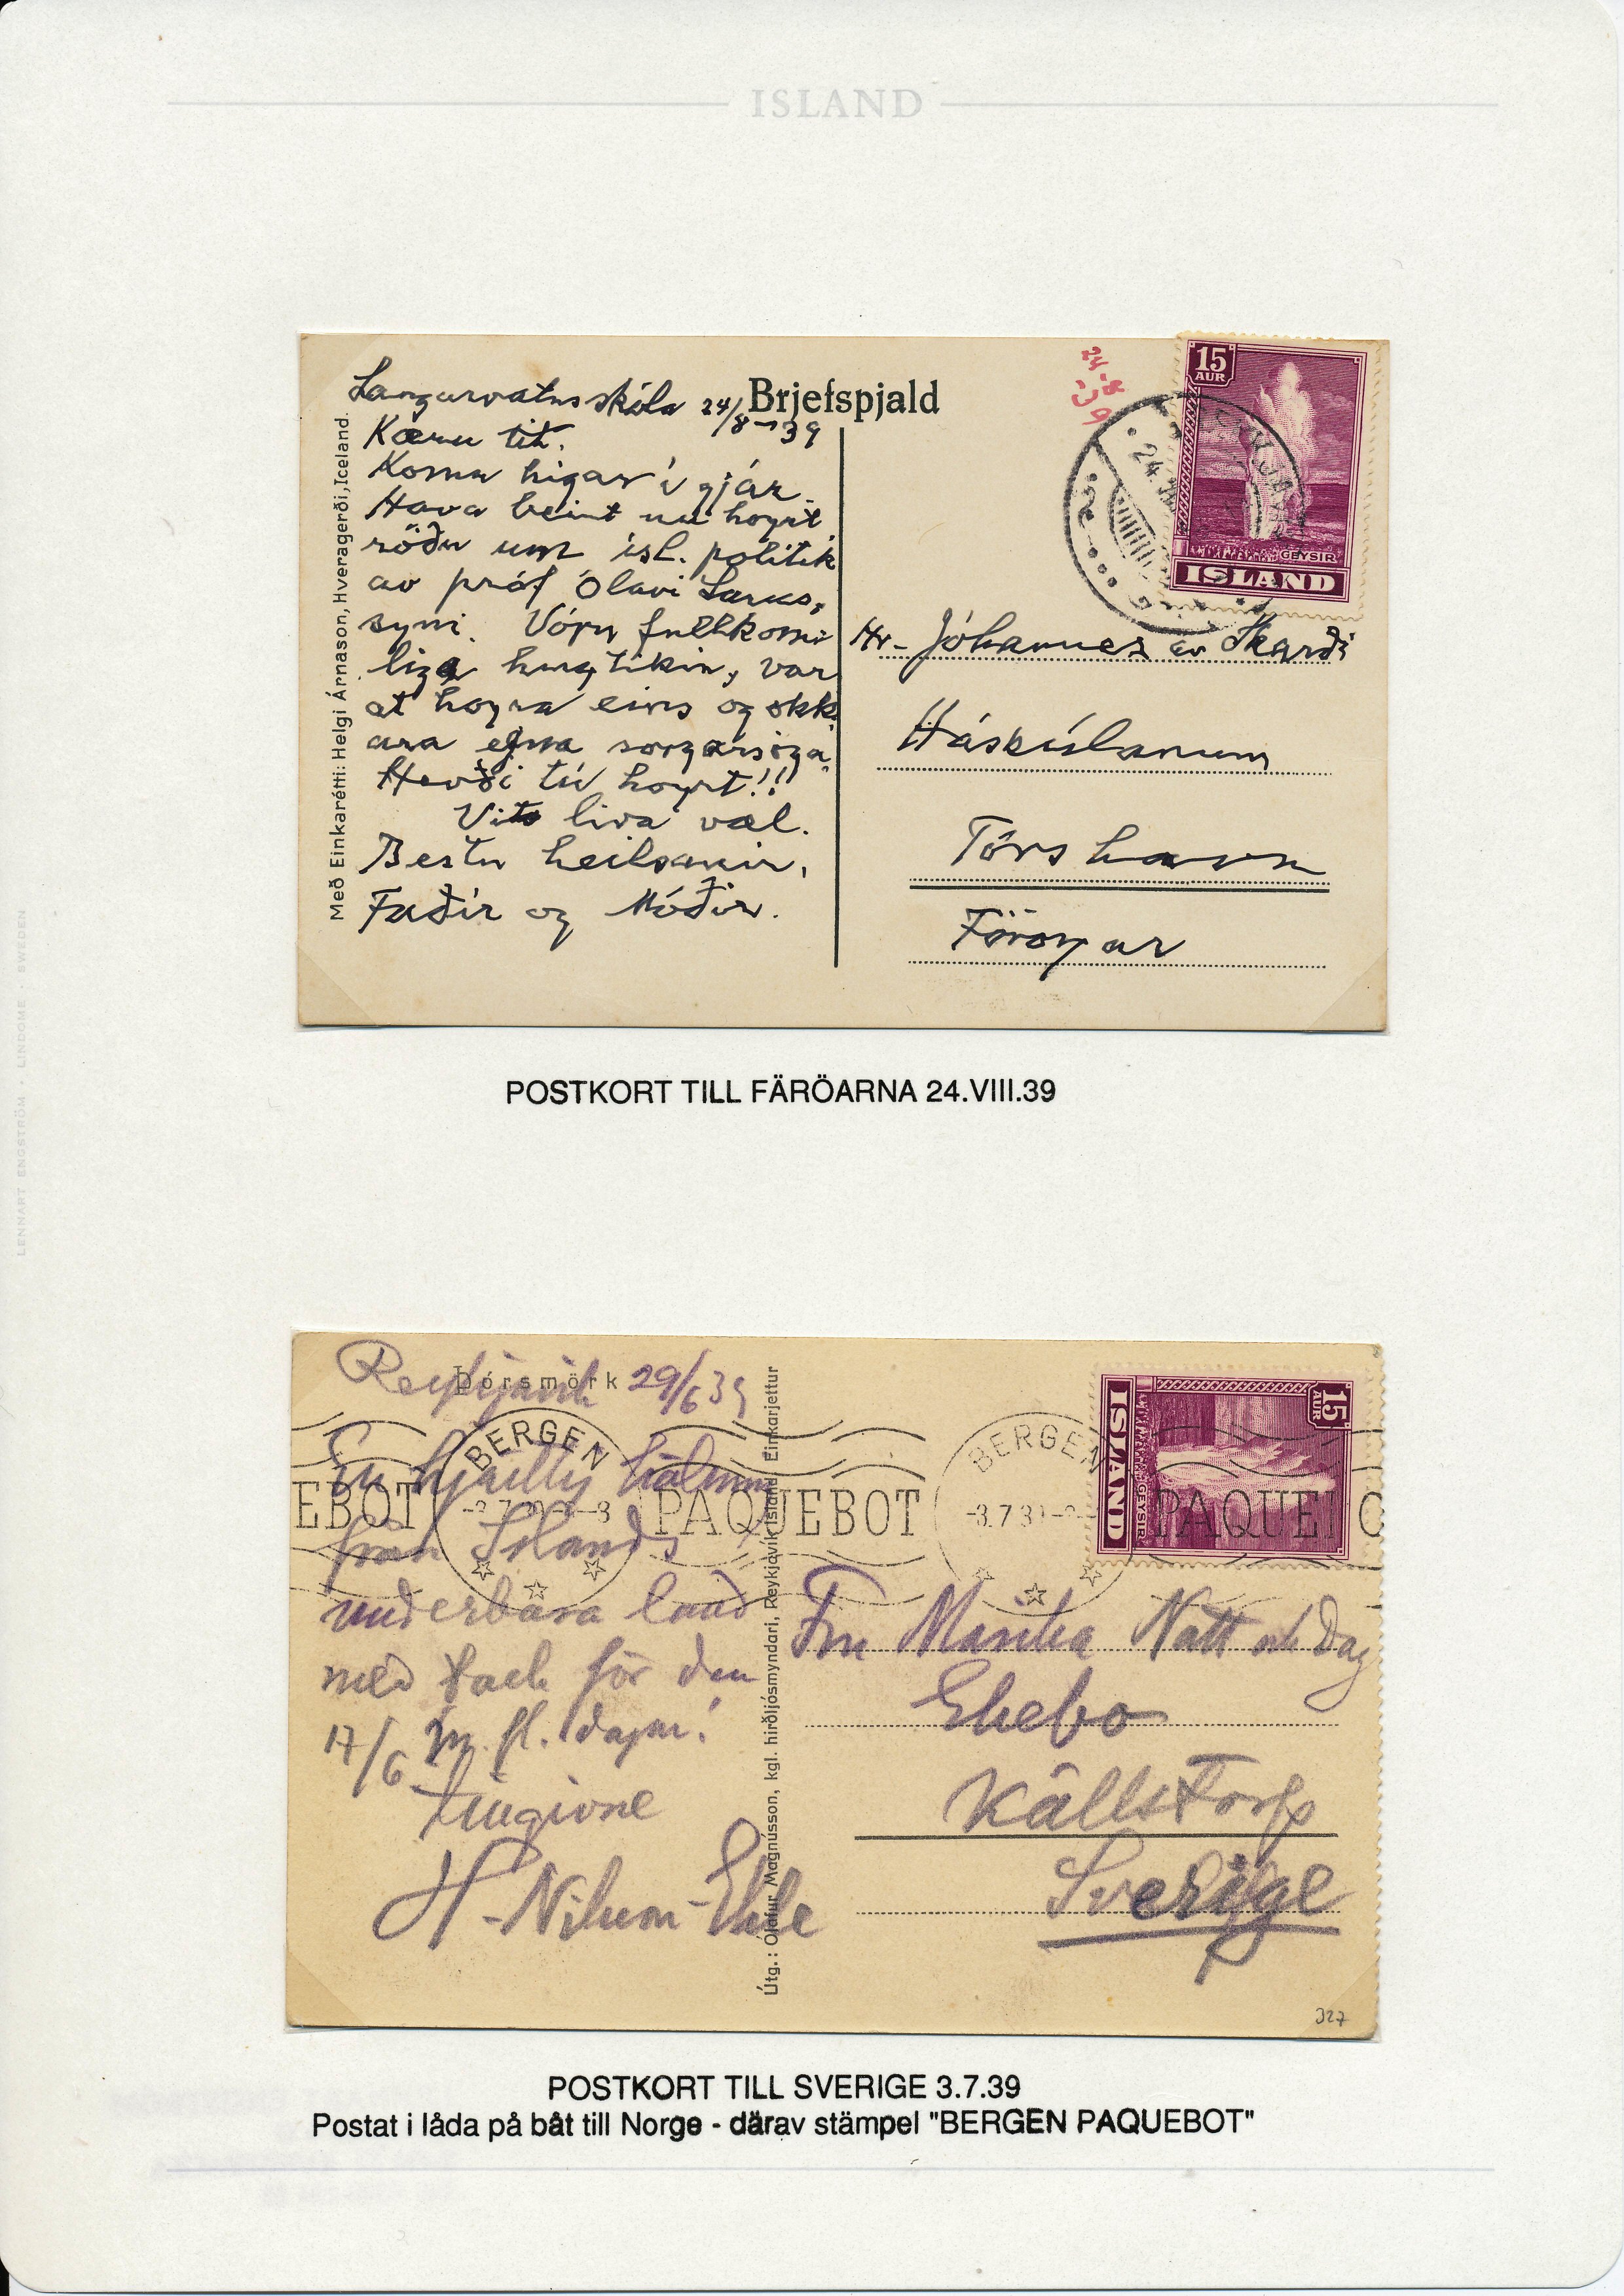 ISLAND
Langarvatnsskúla 24/8-39
Brjefspjald
Kæru tit.
Komu higar í gjár.
Hava beint nú hoyrt
röðu um ísl. politik
av próf Ólavi Larus-
syni. Vóru fullkomi-
liga hugtikin, var
at hoyra eins og okk-
ara egna sorgarsöga.
Hevði tú hoyrt!!!
Vit liva væl.
Bestu heilsanir,
Faðir og Móðir.
Með Einkarétti: Helgi Árnason, Hveragerði, Iceland.
24-8-39
15 AUR
GEYSIR
ISLAND
24.
Hr. Jóhannes av Skarði
Háskúlanum
Tórshavn
Föroyar
POSTKORT TILL FÄRÖARNA 24.VIII.39
LENNART ENGSTRÖM • LINDOME SWEDEN
Þórsmörk
Reykjavik 29/6 39
En hjärtlig hälsning
från Islands
underbara land
med tack för den
17/6 m. fl. dagar!
H. Nilsson-Ehle
Útg.: Ólafur Magnússon, kgl. hirðljósmyndari, Reykjavík Island Einkarjettur
EBOT
BERGEN
-3.7.39-8
PAQUEBOT
BERGEN
-3.7.39-
PAQUE
15 AUR
GEYSIR
ISLAND
Fru Marika Natt och Dag
Ehebo
Källstorp
Sverige
327
POSTKORT TILL SVERIGE 3.7.39
Postat i låda på båt till Norge - därav stämpel "BERGEN PAQUEBOT"